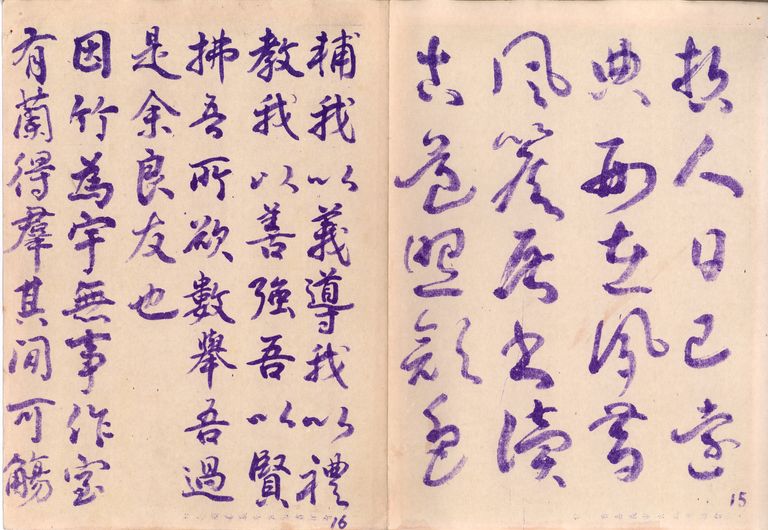 哲人日已遠
典刑在夙昔
風簷展書讀
古道照顏色
15
輔我以義導我以禮
教我以善強吾以賢
拂吾所欲數舉吾過
是余良友也
因竹為宇無事作室
有蘭得羣其間可觴
16